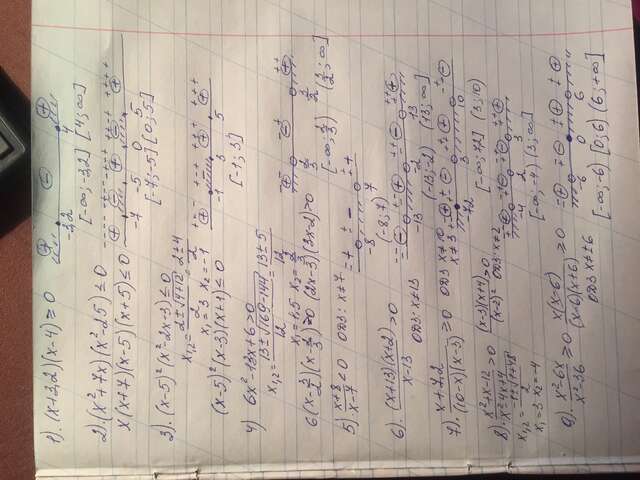 1). (x+3,2)(x-4) ≥ 0   + - +   -3,2   4
[-∞;-3,2] [4;∞]
2). (x²+7x)(x²-25) ≤ 0
x(x+7)(x-5)(x+5) ≤ 0   -7   -5   0   5
[-7;-5] [0;5]
3). (x-5)²(x²-2x-3) ≤ 0
x₁,₂ = (2±√(4+12))/2 = (2±4)/2
x₁=3 x₂=-1
(x-5)²(x-3)(x+1) ≤ 0   -1   3   5
[-1;3]
4) 6x²-13x+6>0
x₁,₂ = (13±√(169-144))/12 = (13±5)/12
x₁=1,5 x₂=2/3
6(x-3/2)(x-2/3)>0 (2x-3)(3x-2)>0   2/3   3/2
[-∞;2/3) (3/2;∞]
5) (x+8)/(x-7) < 0   ОДЗ: x≠7   -8   7
(-8;7)
6). (x+13)(x+2)/(x-13) > 0   -13   -2   13
ОДЗ: x≠13   (-13;-2) (13;∞]
7). (x+7,2)/((10-x)(x-3)) ≥ 0   ОДЗ x≠10
x≠3   -7,2   3   10
[-∞;-7,2] (3;10)
8). (x²+x-12)/(x²-4x+4) > 0   (x-3)(x+4)/(x-2)² > 0   ОДЗ: x≠2
x₁,₂ = (-1±√(1+48))/2   -4   2   3
x₁=3 x₂=-4   [-∞;-4) (3;∞]
9). (x²-6x)/(x²-36) ≥ 0   x(x-6)/((x-6)(x+6)) ≥ 0   -6   0   6
ОДЗ x≠±6   [-∞;-6) [0;6) (6;+∞]